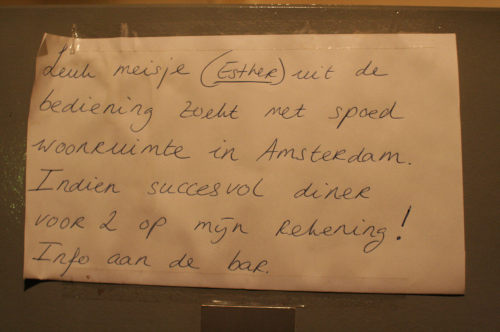 Leuk meisje (Esther) uit de
bediening zoekt met spoed
woonruimte in Amsterdam.
Indien succesvol diner
voor 2 op mijn rekening!
Info aan de bar.